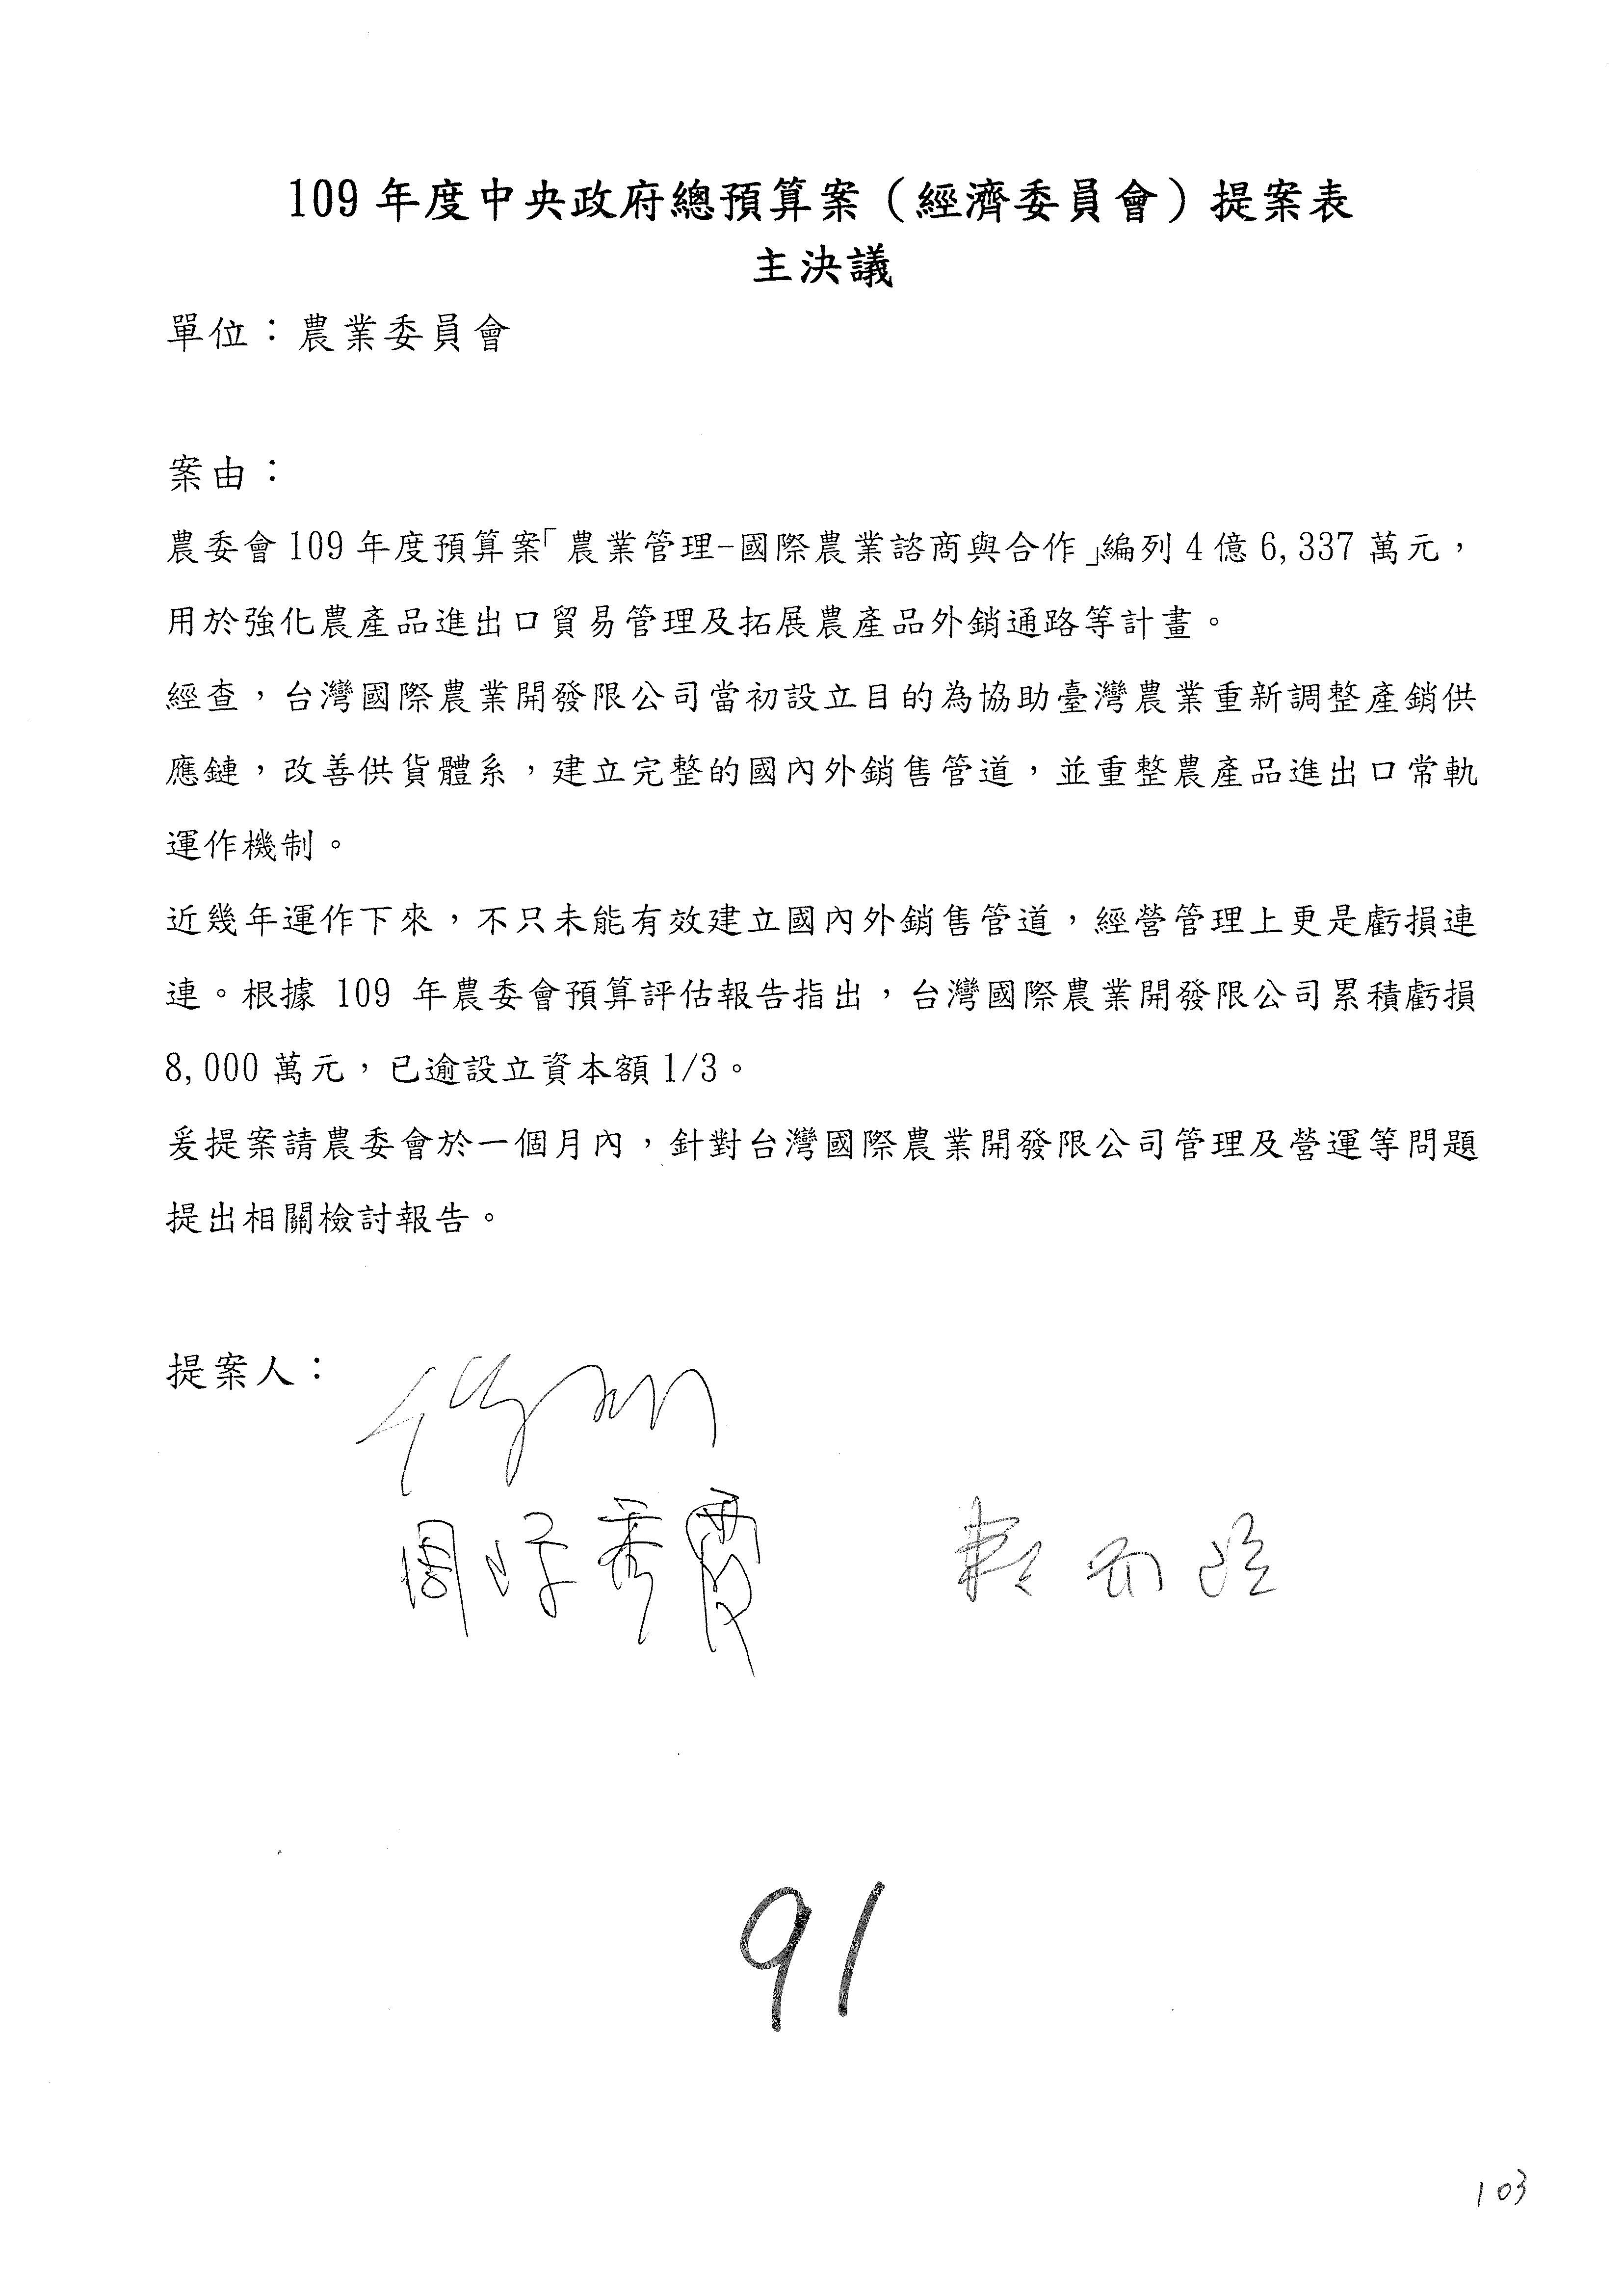 109 年度中央政府總預算案（經濟委員會）提案表
主決議
單位：農業委員會
案由：
農委會 109 年度預算案「農業管理-國際農業諮商與合作」編列 4 億 6,337 萬元，
用於強化農產品進出口貿易管理及拓展農產品外銷通路等計畫。
經查，台灣國際農業開發限公司當初設立目的為協助臺灣農業重新調整產銷供
應鏈，改善供貨體系，建立完整的國內外銷售管道，並重整農產品進出口常軌
運作機制。
近幾年運作下來，不只未能有效建立國內外銷售管道，經營管理上更是虧損連
連。根據 109 年農委會預算評估報告指出，台灣國際農業開發限公司累積虧損
8,000 萬元，已逾設立資本額 1/3。
爰提案請農委會於一個月內，針對台灣國際農業開發限公司管理及營運等問題
提出相關檢討報告。
提案人：
周陳秀霞
91
103